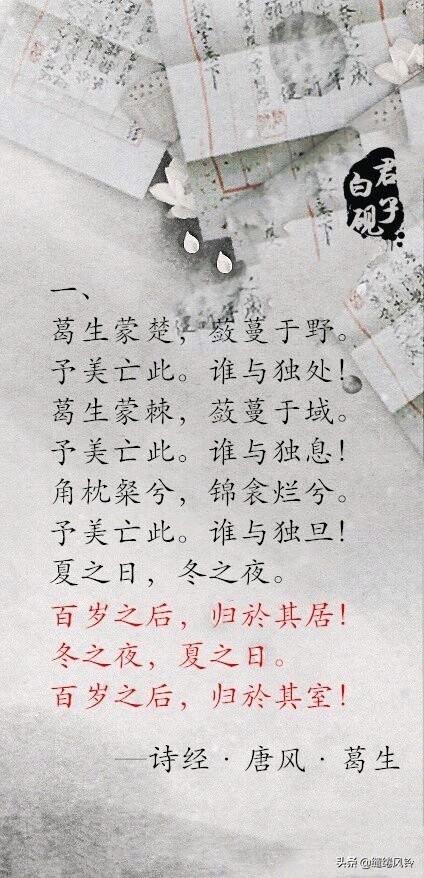 君子
白砚
一、
葛生蒙楚，蔹蔓于野。
予美亡此。谁与独处！
葛生蒙棘，蔹蔓于域。
予美亡此。谁与独息！
角枕粲兮，锦衾烂兮。
予美亡此。谁与独旦！
夏之日，冬之夜。
百岁之后，归於其居！
冬之夜，夏之日。
百岁之后，归於其室！
—诗经·唐风·葛生
头条 @缱绻风铃